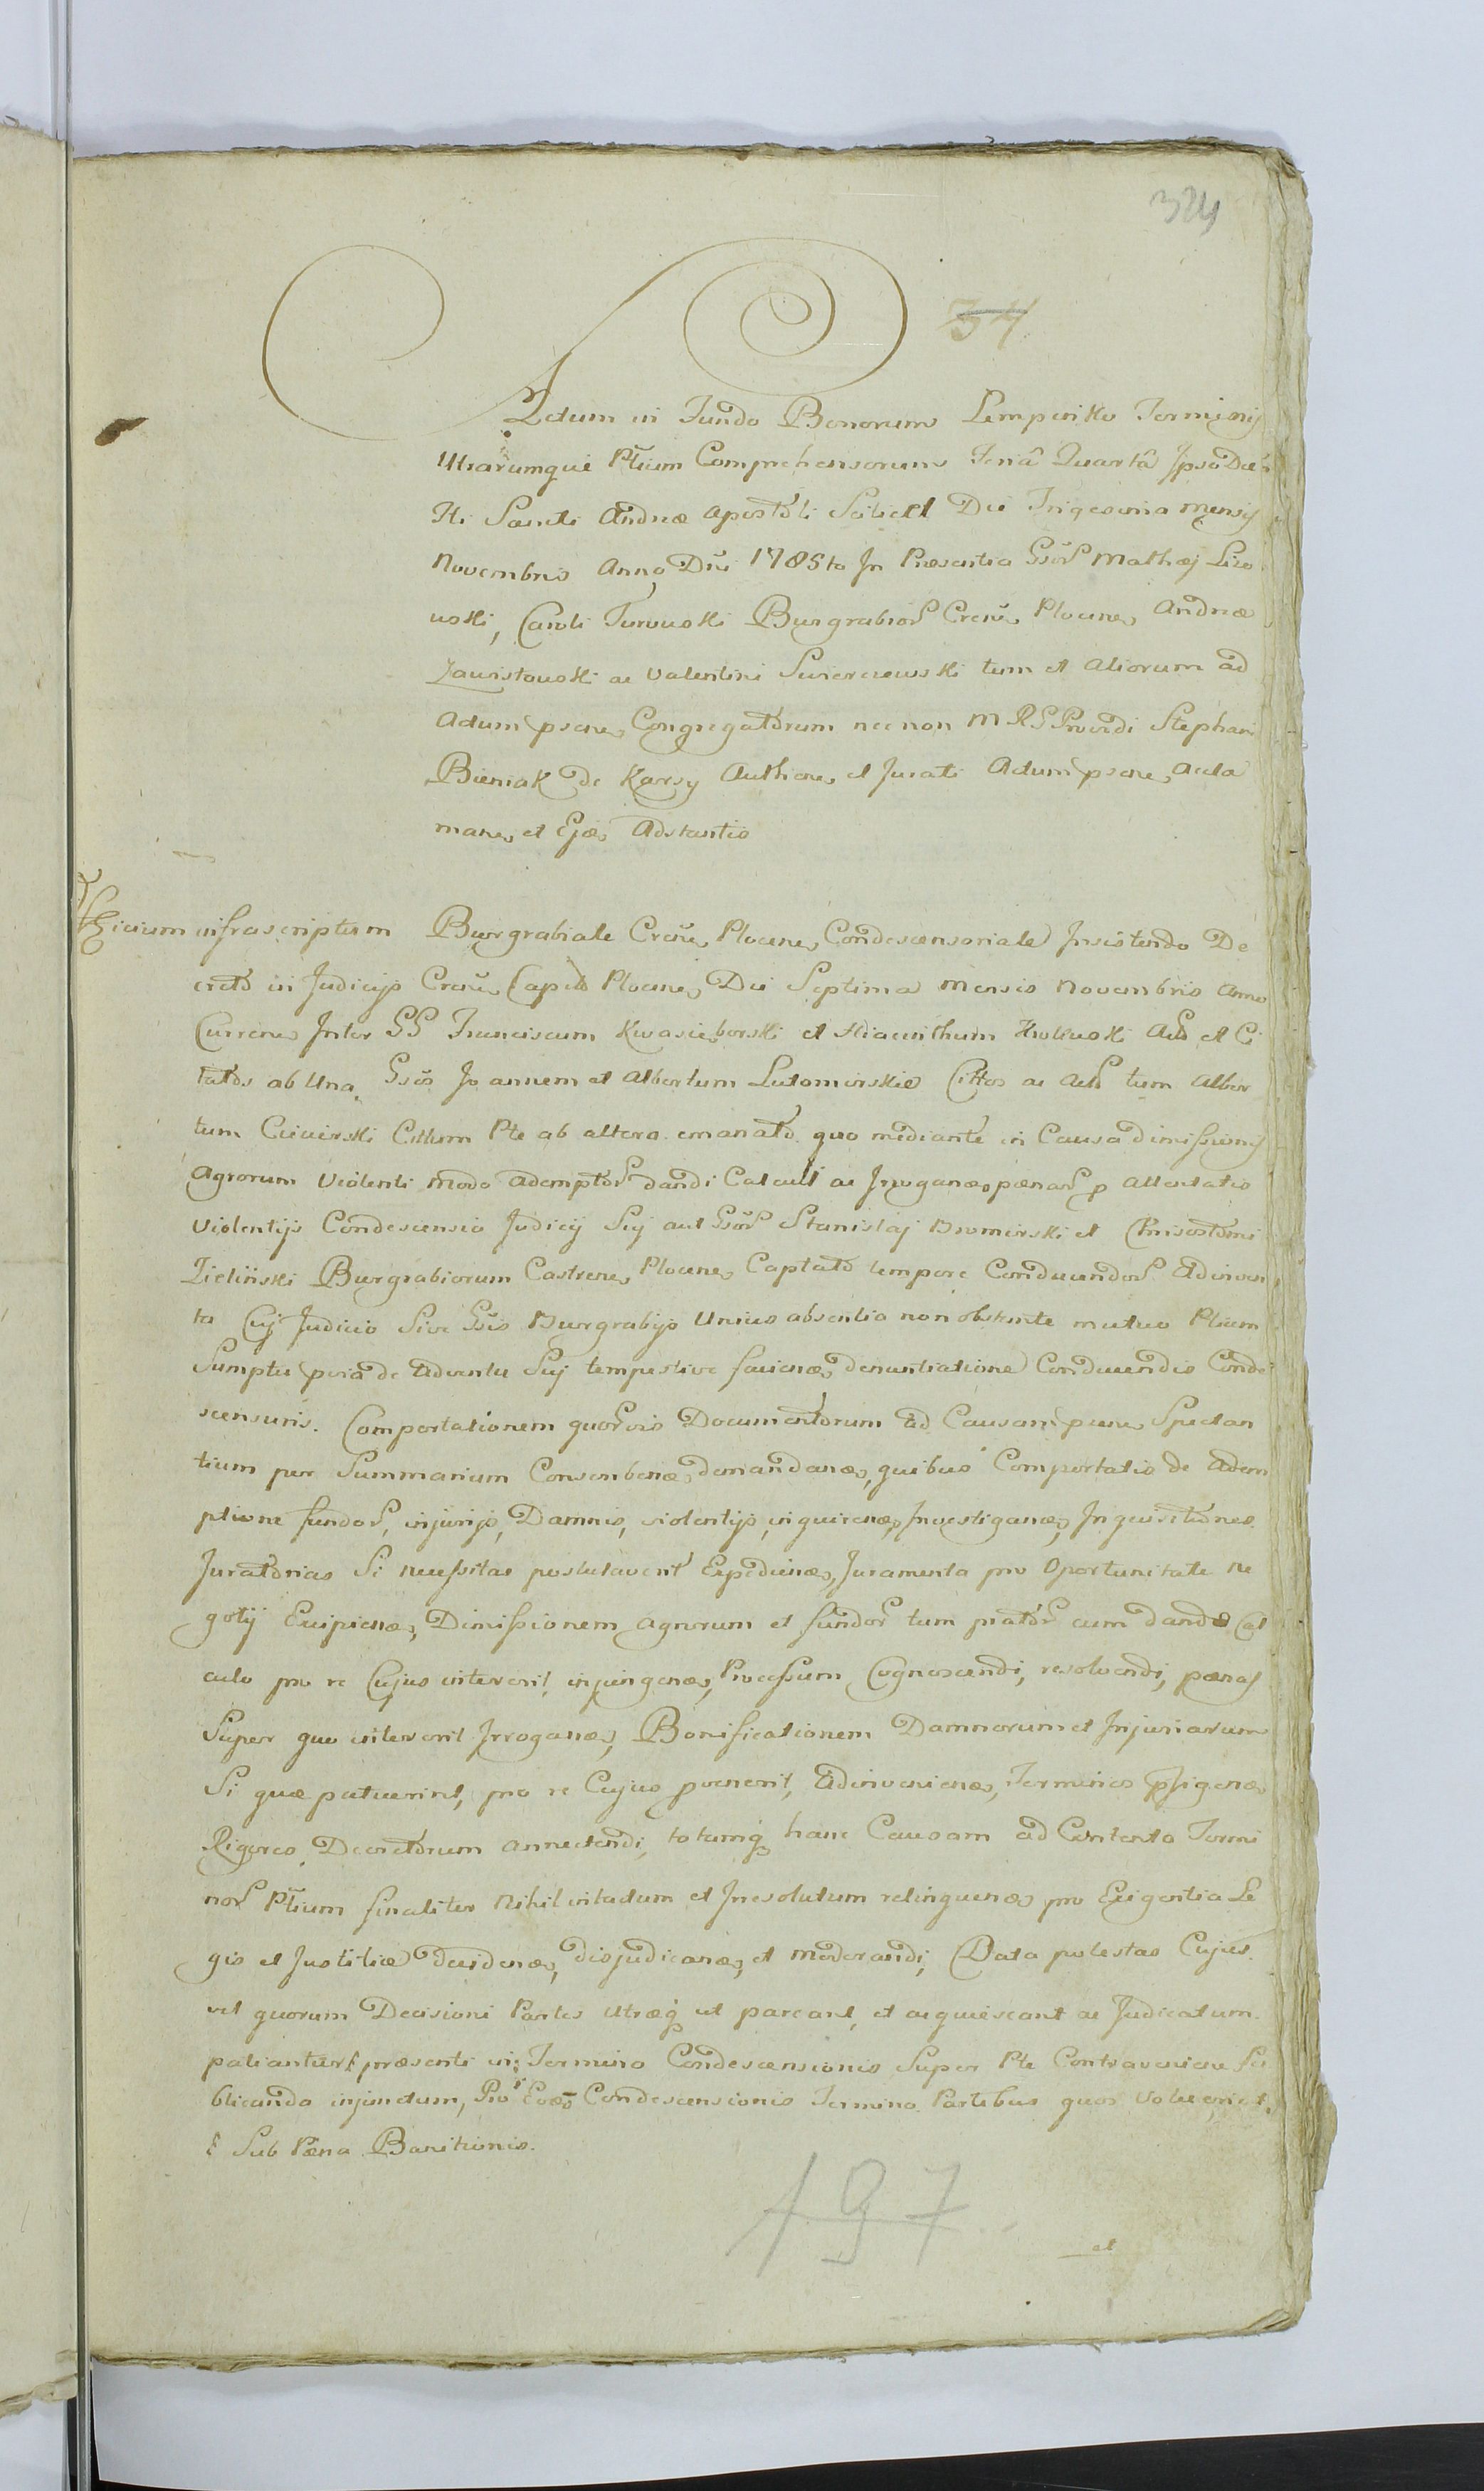 324
37
Actum in Fundo Bonorum Lemperiko Terminis
Utrarumque Ptium Comprehensorum Feria Quarta Ipso Die
Sti Sancti Andreæ Apostoli Scilicet Die Trigesima Mensis
Novembris Anno Dni 1785to In Præsentia Gsor Mathæj Liso
woski, Caroli Turowski Burgrabior Cren Plocen, Andreæ
Zawistowski ac Valentini Swierczewski tum et Aliorum ad
Actum psene, Congregatorum nec non M R S Providi Stephani
Bieniak de Karsy Authen, et Jurati Actum psene, Accla
mane, et Ejæ, Adstantis
infrascriptum Burgrabiale Cren, Plocene, Condescensoriale Insistendo De
creto in Judicijs Cren, Capto Plocene, Die Septima Mensis Novembris Anno
Currene, Inter GG Franciscum Kwasieborski et Hiacinthum Act et Ci
tatos ab Una, Gsos Joannem et Albertum Lutomirskie Cittos ac Act tum Alber
tum Ciwirski Cittum Pte ab altera emanato quo mediante in Causa dimissionis
Agrorum Violenti modo Ademptor dandi Calculi ac Irroganæ pænar p attentatis
violentijs Condescensio Judicij Sui aut Gsor Stanislaj Bromirski et Chrisostomi
Zieliński Burgrabiorum Castrene, Plocene, Captato tempore Conducendor Adinven
ta Cuj Judicio Sive Gsis Burgrabijs Unius absentia non obstante mutuo Ptium
Sumptu de Adventu Suj tempestive facienæ, denuntiatione Conducendis Conde
scensuris. Comportationem quorvis Documentorum ad Causam psene, Spectan
tium per Summarium Conscribenæ, demandanæ, quibus Comportatis de Adem
ptione fundor, injurijs, Damnis, violentijs, inquirenæ, Investiganæ, Inquisitiones
Juratorias Si necessitas postulaverit Expedienæ, Juramenta pro Oportunitate ne
gotij Excipienæ, Dimissionem agrorum et fundor tum prator cum dando Cal
culo pro re Cujus intererit, injungenæ, Processum Cognoscendi, resolvendi, pænas
Super quo intererit Irroganæ, Bonificationem Damnorum et Injuriarum
Si quæ patuerint, pro re Cujus pvenerit, Adinvenienæ, Terminos pfigenæ
Rigores Decretorum annectendi, totamq hanc Causam ad Contenta Termi
nor Ptium finaliter Nihil intactum et Inresolutum relinquenæ, pro Exigentia Le
gis et Justitiæ decidenæ, disjudicanæ, et moderandi, Data potestas Cujus
vel quorum Decisioni Partes Utræq ut pareant, et acquiescant ac Judicatum
patiantur præsenti in Termino Condescensionis Super Pte Contraveniene
blicanda injunctum, Pro Condescensionis Termino Partibus quos voluerint
Sub Pæna Banitionis.
197
et